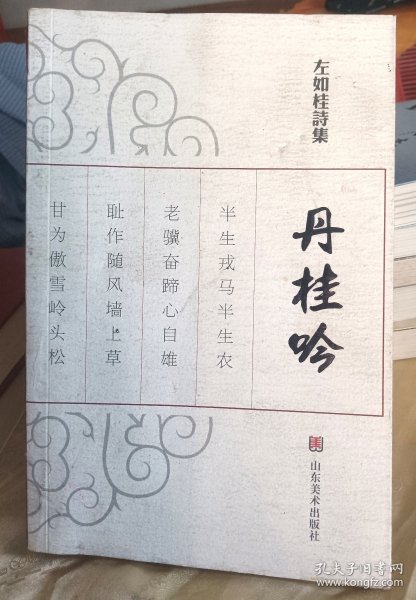 左如桂詩集
丹桂吟
半生戎马半生农
老骥奋蹄心自雄
耻作随风墙上草
甘为傲雪岭头松
美
山东美术出版社
孔夫子旧书网
www.kongfz.com